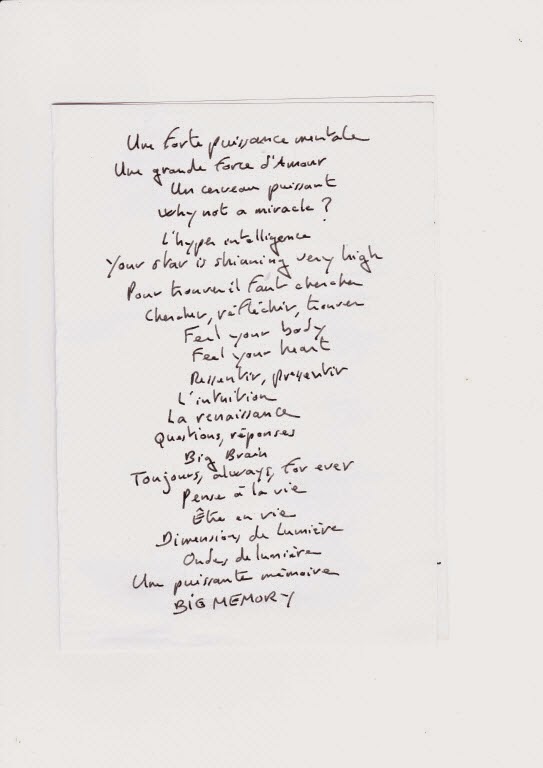 Une forte puissance mentale
Une grande force d'Amour
Un cerveau puissant
Why not a miracle ?
L'hyper intelligence
Your star is shinning very high
Pour trouver il faut chercher
Chercher, réfléchir, trouver
Feel your body
Feel your heart
Ressentir, pressentir
L'intuition
La renaissance
Questions, réponses
Big Brain
Toujours, always, for ever
Pense à la vie
Être en vie
Dimensions de Lumière
Ondes de lumière
Une puissante mémoire
BIG MEMORY